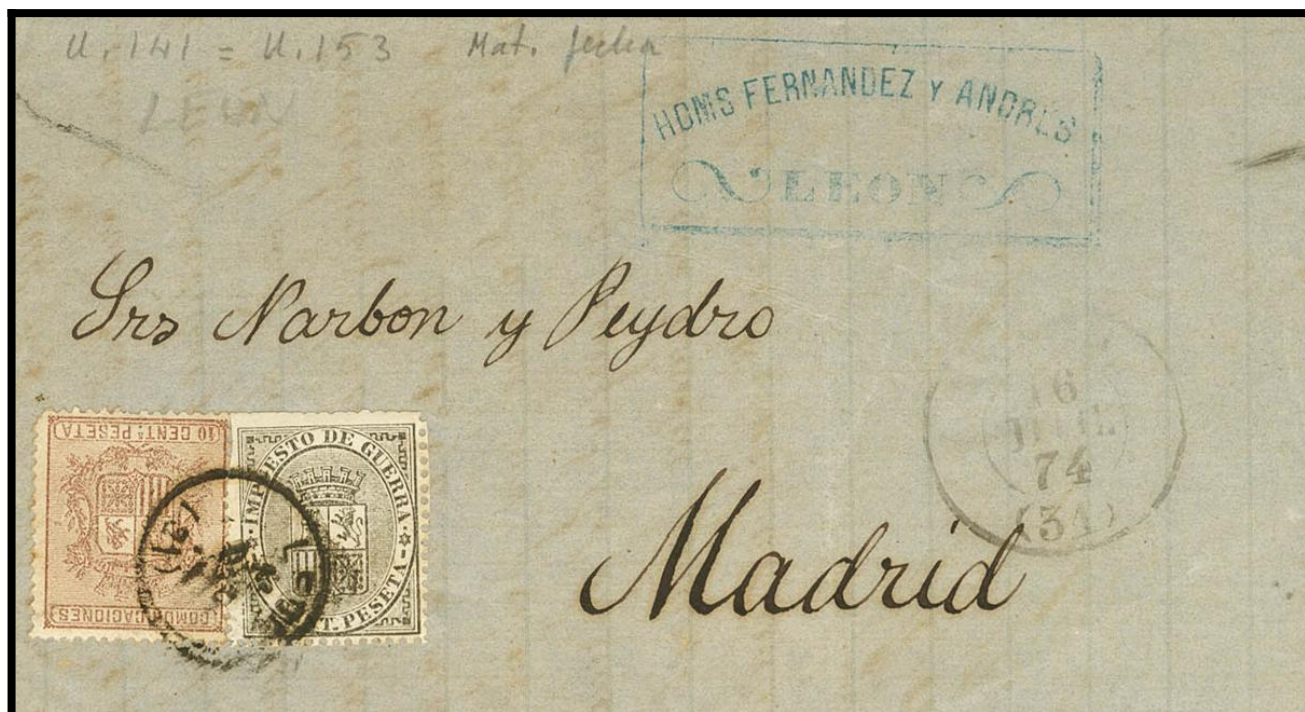 U. 141 = U. 153 Mat. fecha
LEON
HOMS FERNANDEZ Y ANDRES
LEON
Srs Narbon y Peydro
10 CENT.s PESETA
COMUNICACIONES
IMPUESTO DE GUERRA
T. PESETA
16
74
(31)
Madrid